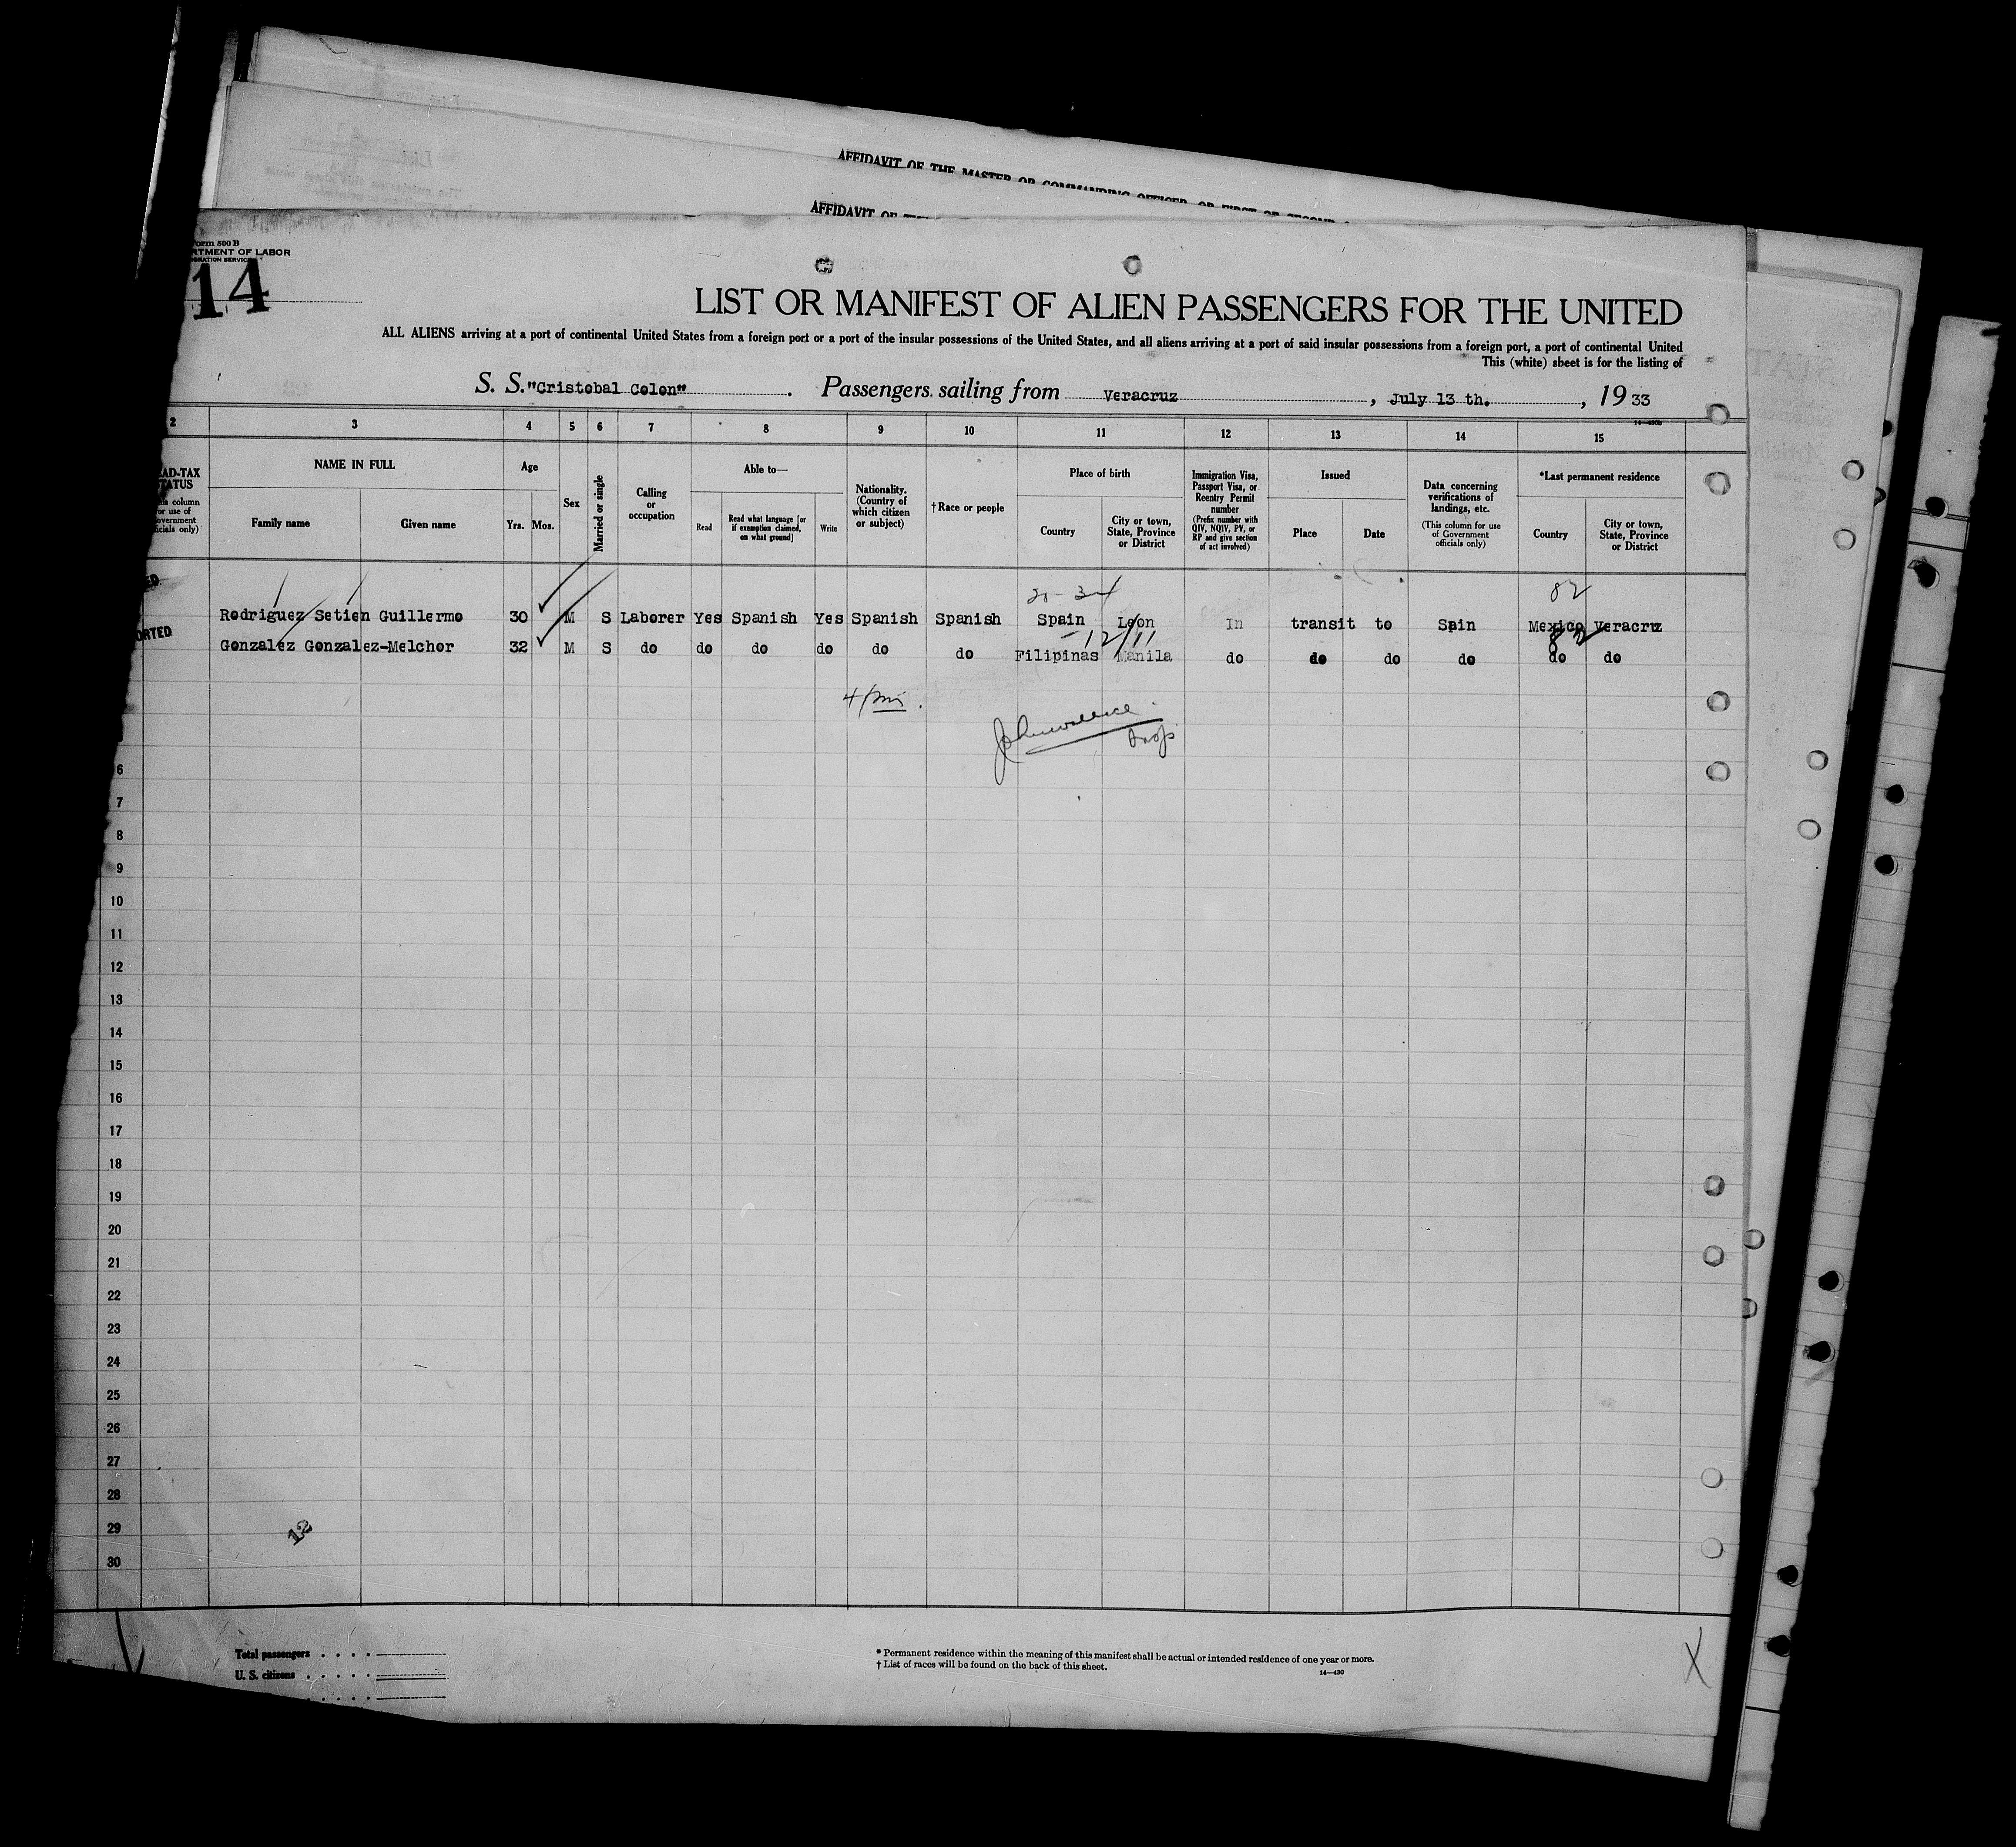 AFFIDAVIT OF THE MASTER OR COMMANDING OFFICER, OR FIRST OR SECOND
AFFIDAVIT OF
orm 500 B
RTMENT OF LABOR
GRATION SERVICE
14
LIST OR MANIFEST OF ALIEN PASSENGERS FOR THE UNITED
ALL ALIENS arriving at a port of continental United States from a foreign port or a port of the insular possessions of the United States, and all aliens arriving at a port of said insular possessions from a foreign port, a port of continental United
This (white) sheet is for the listing of
S. S. "Cristobal Colon". Passengers sailing from Veracruz, July 13 th., 19 33
2 3 4 5 6 7 8 9 10 11 12 13 14 15
EAD-TAX STATUS
his column or use of overnment icials only)
NAME IN FULL
Family name
Given name
Age
Yrs. Mos.
Sex
Married or single
Calling or occupation
Able to—
Read
Read what language [or if exemption claimed, on what ground]
Write
Nationality. (Country of which citizen or subject)
† Race or people
Place of birth
Country
City or town, State, Province or District
Immigration Visa, Passport Visa, or Reentry Permit number
(Prefix number with QIV, NQIV, PV, or RP and give section of act involved)
Issued
Place
Date
Data concerning verifications of landings, etc.
(This column for use of Government officials only)
*Last permanent residence
Country
City or town, State, Province or District
82
Rodriguez Setien Guillermo 30 M S Laborer Yes Spanish Yes Spanish Spanish Spain Leon In transit to Spin Mexico Veracruz
ORTED
12/11
82
Gonzalez Gonzalez-Melchor 32 M S do do do do do do Filipinas Manila do do do do do do
6
7
8
9
10
11
12
13
14
15
16
17
18
19
20
21
22
23
24
25
26
27
28
29
30
12
Total passengers
U. S. citizens
* Permanent residence within the meaning of this manifest shall be actual or intended residence of one year or more.
† List of races will be found on the back of this sheet.
14—430